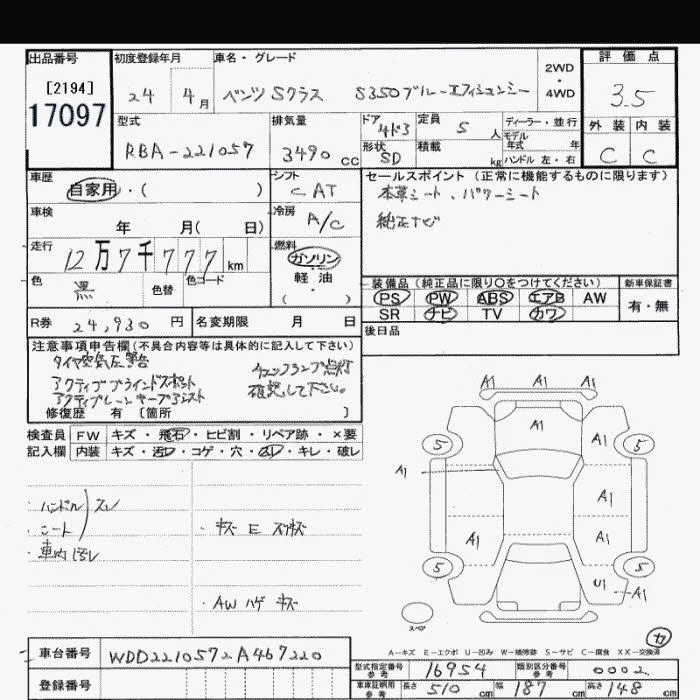 出品番号 初度登録年月 車名・グレード 評価点
[2194]
17097
24 4月 ベンツ Sクラス S350ブルーエフィシェンシー 2WD・4WD 3.5
型式 排気量 ドア 4ドア 定員 5人 ディーラー・並行 外装 内装
RBA-221057 3490cc 形状 SD 積載 kg モデル年式 年 ハンドル 左・右 C C
車歴 シフト セールスポイント (正常に機能するものに限ります)
自家用・( ) C AT 本革シート、パワーシート
車検 年 月( 日) 冷房 A/C 純正ナビ
走行 12万7千777km 燃料 ガソリン
色 黒 色替 色コード 軽油 ( )
装備品 (純正品に限り○をつけてください) 新車保証書
PS PW ABS エアB AW 有・無
SR ナビ TV カワ
R券 24,930円 名変期限 月 日 後日品
注意事項申告欄(不具合内容等は具体的に記入して下さい)
タイヤ空気圧警告 チェックランプ点灯
アクティブブラインドスポット 確認して下さい。
アクティブレーンキープアシスト
修復歴 有 [箇所 ]
検査員 FW キズ・飛石・ヒビ割・リペア跡・×要
記入欄 内装 キズ・汚レ・コゲ・穴・スレ・キレ・破レ
・ハンドル スレ
・シート
・車内汚レ
・キズ E スリキズ
・AWハゲ キズ
A1 A1 A1
A1
A1
5 5
A1
A1
A1 A1
5 5
U1 A1
スペア
カ
A-キズ E-エクボ U-凹み W-補修跡 S-サビ C-腐食 XX-交換済
車台番号 WDD2210572A467220
登録番号
型式指定番号 参考 16954 類別区分番号 参考 0002
車庫証明用 参考 長さ 510cm 幅 187cm 高さ 148cm